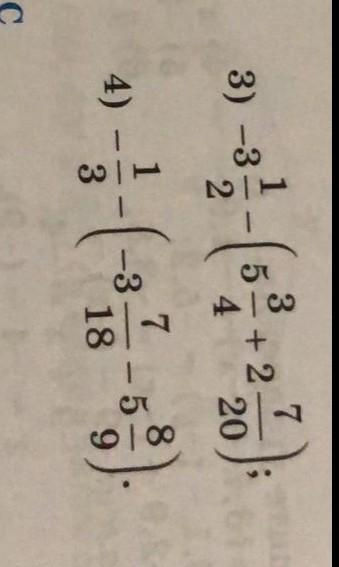 3) -3 1/2 - (5 3/4 + 2 7/20);
4) - 1/3 - (-3 7/18 - 5 8/9).
C